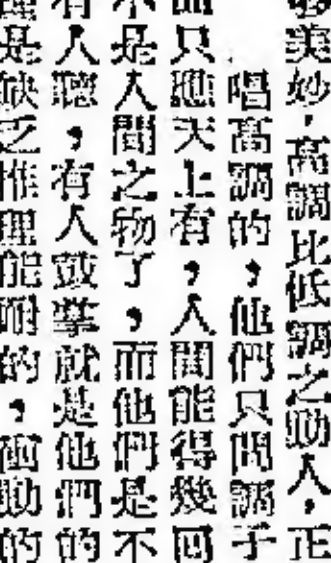 美妙，高調比低調之動人，正
唱高調的，他們只問調子
只應天上有，人間能得幾回
不是人間之物了，而他們是不
有人聽，有人鼓掌就是他們的
理是缺乏推理能耐的，衝動的